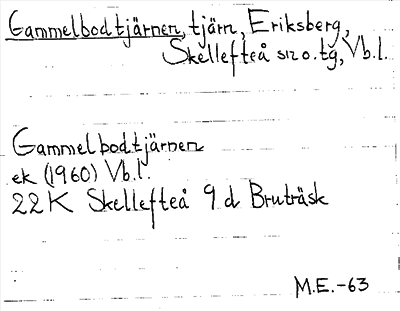 Gammelbodtjärnen, tjärn, Eriksberg,
Skellefteå sn o. tg, Vb.l.
Gammelbodtjärnen
ek (1960) Vb.l.
22 K Skellefteå 9 d Bruträsk
M.E.-63